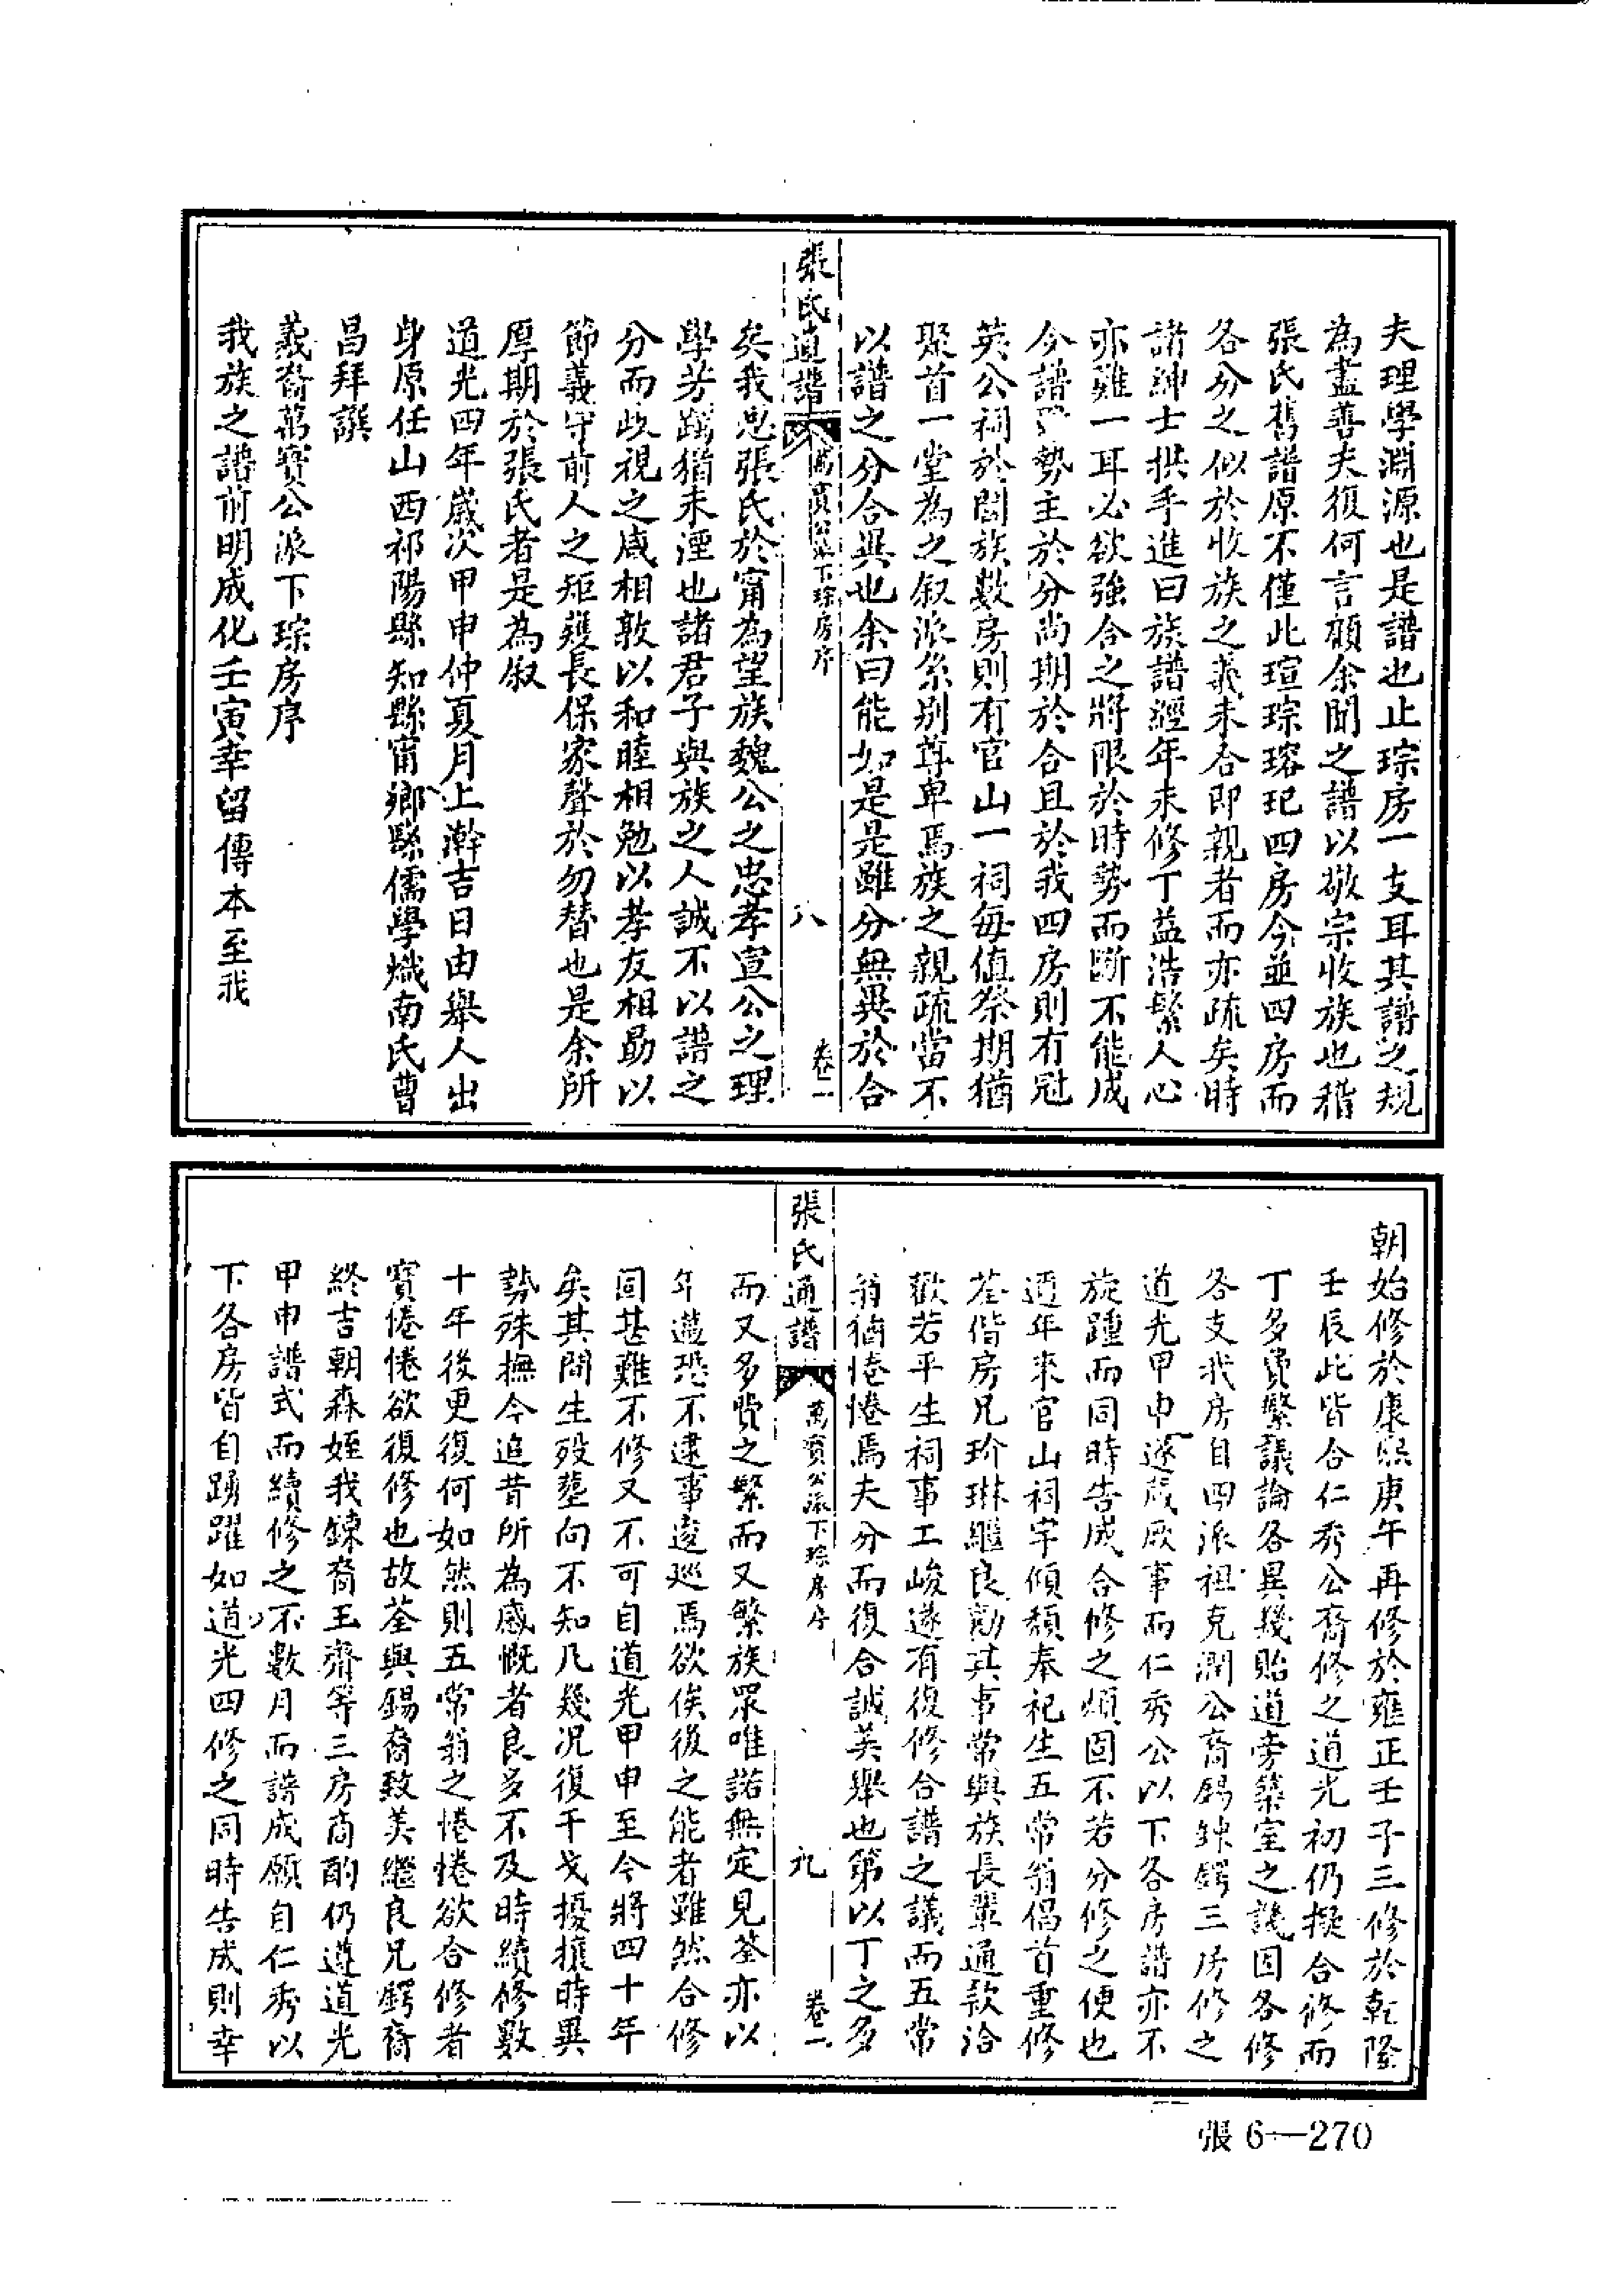 夫理學淵源也是譜也止琮房一支耳其譜之規
為盡善夫復何言顧余聞之譜以敬宗收族也稽
張氏舊譜原不僅此瑄琮瑢玘四房今並四房而
各分之似於收族之義未合即親者而亦疏矣時
諸紳士拱手進曰族譜經年未修丁益浩繁人心
亦難一耳必欲強合之將限於時勢而斷不能成
今譜勢主於分尚期於合且於我四房則有冠
英公祠於闔族數房則有官山一祠每值祭期猶
聚首一堂為之叙派系別尊卑焉族之親疏當不
以譜之分合異也余曰能如是是雖分無異於合
張氏通譜 萬寶公派下琮房序 八 卷二
矣我思張氏於甯為望族魏公之忠孝宣公之理
學芳躅猶未湮也諸君子與族之人誠不以譜之
分而歧視之咸相敦以和睦相勉以孝友相勗以
節義守前人之矩矱長保家聲於勿替也是余所
厚期於張氏者是為叙
道光四年歲次甲申仲夏月上澣吉日由舉人出
身原任山西祁陽縣知縣甯鄉縣儒學熾南氏曹
昌拜譔
義裔萬寶公派下琮房序
我族之譜前明成化壬寅幸留傳本至我
朝始修於康熙庚午再修於雍正壬子三修於乾隆
壬辰此皆合仁秀公裔修之道光初仍擬合修而
丁多費繁議論各異幾貽道旁築室之譏因各修
各支我房自四派祖克潤公裔錫錬鍔三房修之
道光甲申遂蕆厥事而仁秀公以下各房譜亦不
旋踵而同時告成合修之煩固不若分修之便也
邇年來官山祠宇傾頹奉祀生五常翁倡首重修
荃偕房兄玠琳繼良勷其事常與族長輩通款洽
歡若平生祠事工峻遂有復修合譜之議而五常
翁猶惓惓焉夫分而復合誠美舉也第以丁之多
張氏通譜 萬寶公派下琮房序 九 卷一
而又多費之繁而又繁族眾唯諾無定見荃亦以
年邁恐不逮事逡巡焉欲俟後之能者雖然合修
固甚難不修又不可自道光甲申至今將四十年
矣其間生歿塟向不知凡幾況復干戈擾攘時異
勢殊撫今追昔所為感慨者良多不及時續修數
十年後更復何如然則五常翁之惓惓欲合修者
寶惓惓欲復修也故荃與錫裔致美繼良兄鍔裔
終吉朝森姪我錬裔玉齋等三房商酌仍遵道光
甲申譜式而續修之不數月而譜成願自仁秀以
下各房皆自踴躍如道光四修之同時告成則幸
張6—270